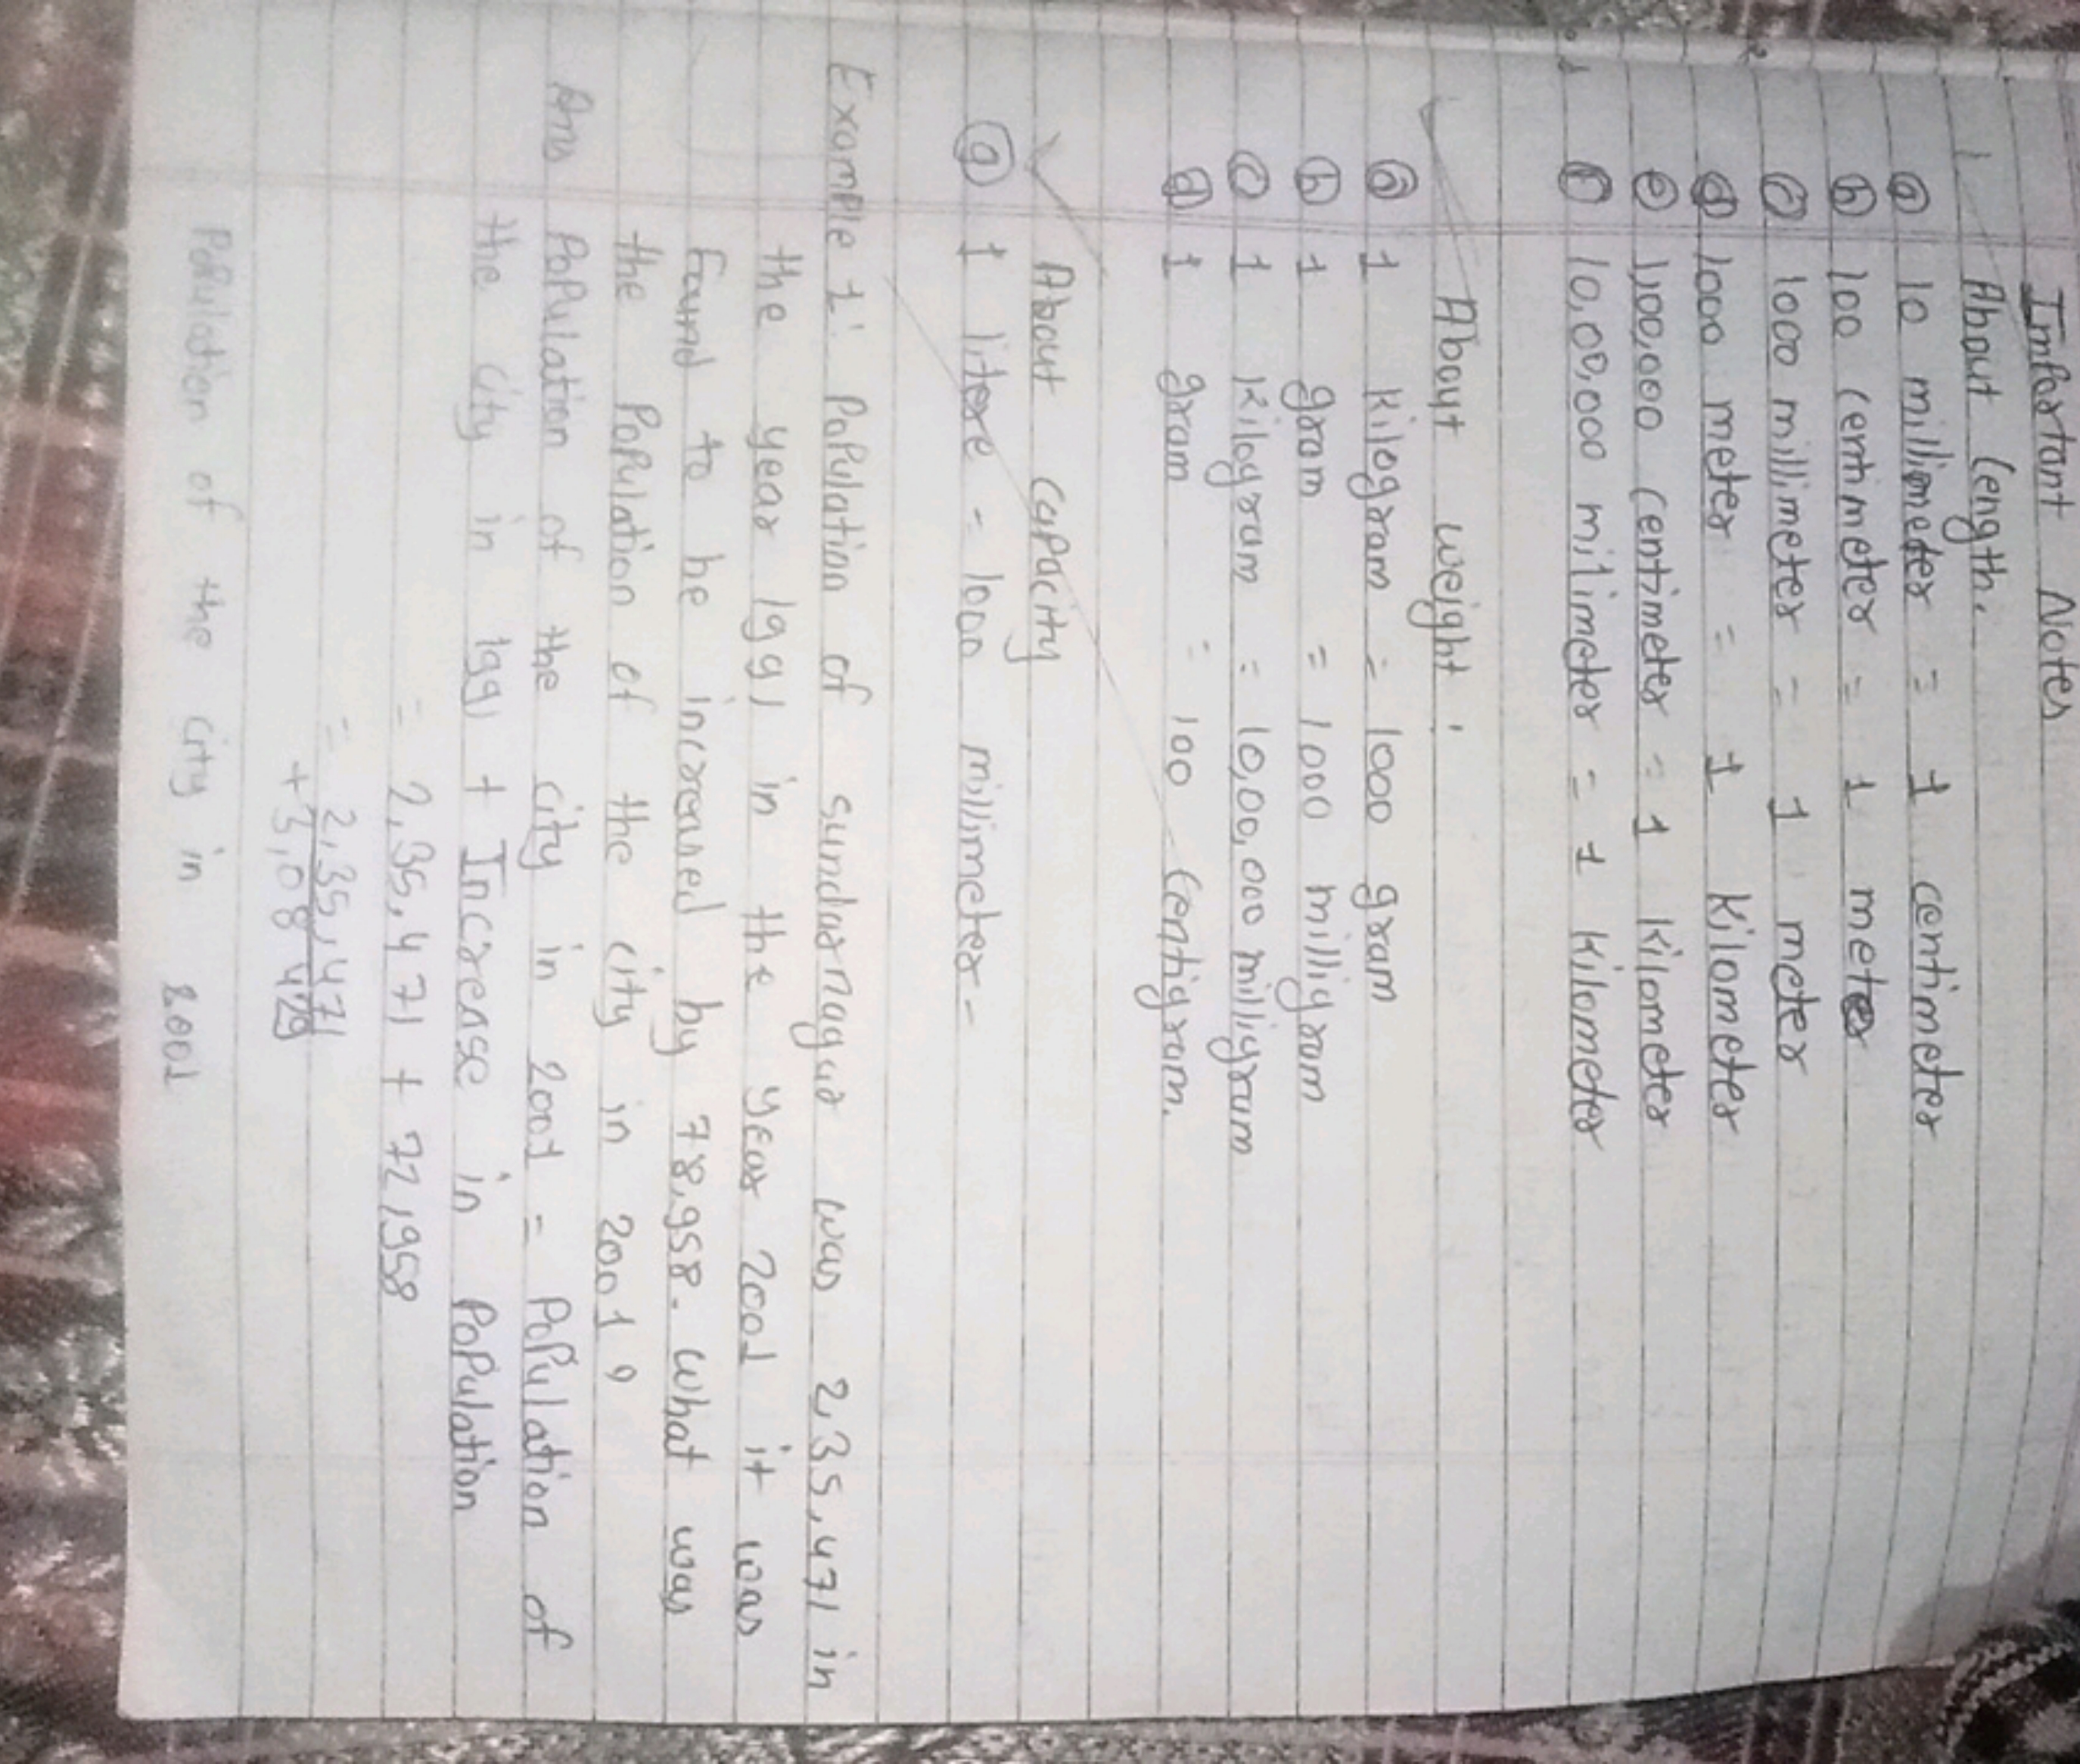 Important Notes
1 About length.
(a) 10 millimeter = 1 centimeter
(b) 100 centimeter = 1 meter
(c) 1000 millimeter = 1 meter
(d) 1000 meter = 1 kilometer
(e) 1,00,000 centimeter = 1 kilometer
(f) 10,00,000 milimeter = 1 kilometer
About weight :
(a) 1 kilogram = 1000 gram
(b) 1 gram = 1000 milligram
(c) 1 kilogram = 10,00,000 milligram
(d) 1 gram = 100 centigram.
About capacity
(a) 1 litere = 1000 millimeter-
Example 1: Population of sundarnagar was 2,35,471 in
the year 1991 in the year 2001 it was
found to be increased by 78,958. what was
the population of the city in 2001?
Ans Population of the city in 2001 = Population of
the city in 1991 + Increase in Population
= 2,35,471 + 72,958
= 2,35,471
+ 3,08 429
Population of the city in 2001